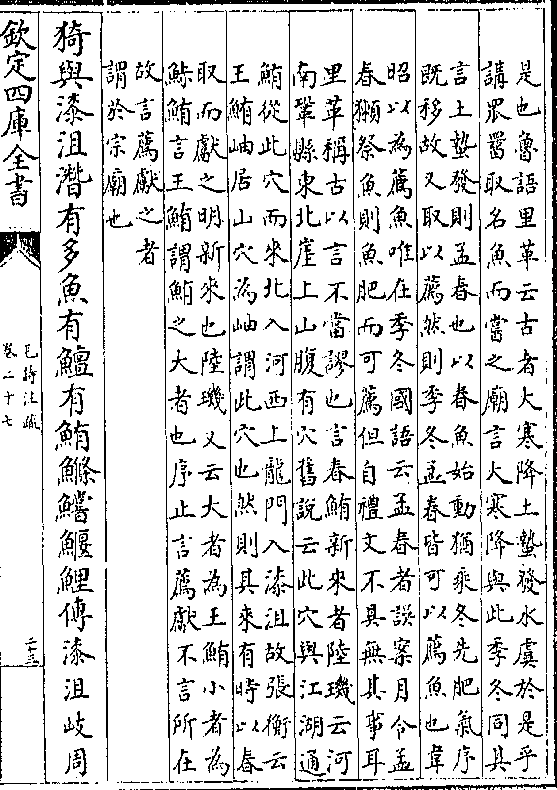 是也魯語里革云古者大寒降土蟄發水虞於是乎
講罛罶取名魚而嘗之廟言大寒降與此季冬同其
言土蟄發則孟春也以春魚始動猶乘冬先肥氣序
既移故又取以薦然則季冬孟春皆可以薦魚也韋
昭以為薦魚唯在季冬國語云孟春者誤案月令孟
春獺祭魚則魚肥而可薦但自禮文不具無其事耳
里革稱古以言不當謬也言春鮪新來者陸璣云河
南鞏縣東北崖上山腹有穴舊說云此穴與江湖通
鮪從此穴而來北入河西上龍門入漆沮故張衡云
王鮪岫居山穴為岫謂此穴也然則其來有時以春
取而獻之明新來也陸璣又云大者為王鮪小者為
鮛鮪言王鮪謂鮪之大者也序止言薦獻不言所在
故言薦獻之者
謂於宗廟也
猗與漆沮潛有多魚有鱣有鮪鰷鱨鰋鯉傳漆沮岐周
欽定四庫全書
毛詩注疏
卷二十七